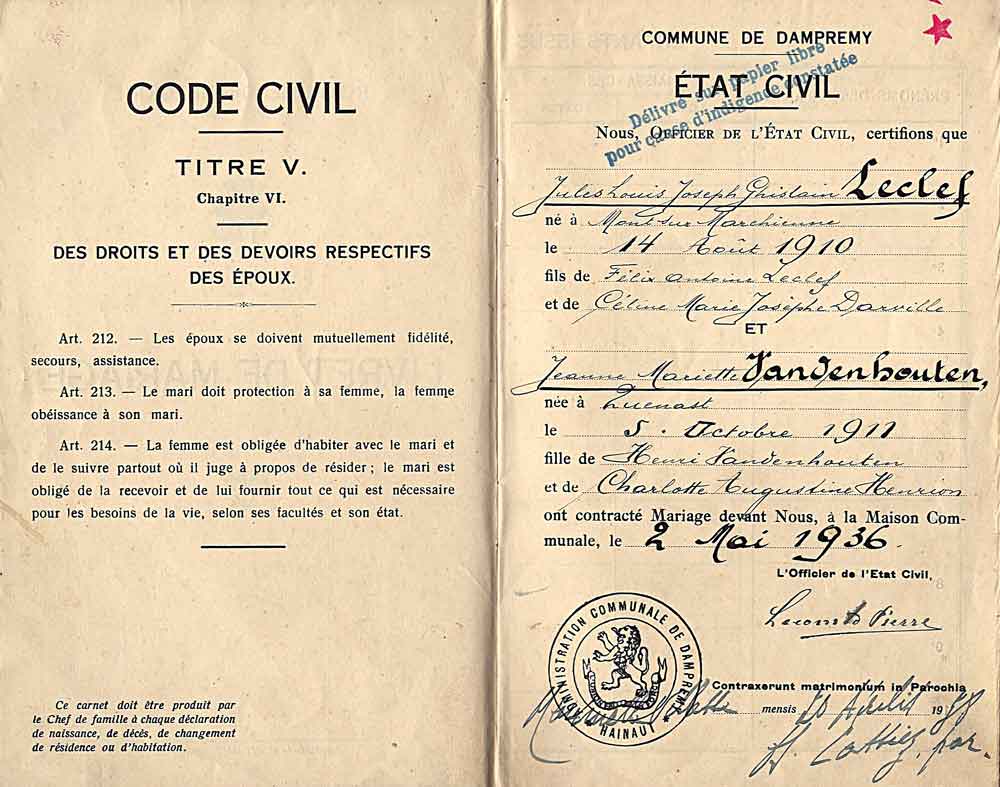 CODE CIVIL
TITRE V.
Chapitre VI.
DES DROITS ET DES DEVOIRS RESPECTIFS
DES ÉPOUX.
Art. 212. — Les époux se doivent mutuellement fidélité,
secours, assistance.
Art. 213. — Le mari doit protection à sa femme, la femme
obéissance à son mari.
Art. 214. — La femme est obligée d'habiter avec le mari et
de le suivre partout où il juge à propos de résider ; le mari est
obligé de la recevoir et de lui fournir tout ce qui est nécessaire
pour les besoins de la vie, selon ses facultés et son état.
Ce carnet doit être produit par
le Chef de famille à chaque déclaration
de naissance, de décès, de changement
de résidence ou d'habitation.
COMMUNE DE DAMPREMY
ÉTAT CIVIL
Délivré sur papier libre
pour cause d'indigence constatée
Nous, OFFICIER DE L'ÉTAT CIVIL, certifions que
Jules Louis Joseph Ghislain Leclef
né à Mont sur Marchienne
le 14 Août 1910
fils de Félix Antoine Leclef
et de Céline Marie Josèphe Darville
ET
Jeanne Mariette Vandenhouten,
née à Quenast
le 5 Octobre 1911
fille de Henri Vandenhouten
et de Charlotte Augustine Henrion
ont contracté Mariage devant Nous, à la Maison Com-
munale, le 2 Mai 1936.
L'Officier de l'Etat Civil,
Lecomte Pierre
ADMINISTRATION COMMUNALE DE DAMPREMY
HAINAUT
Contraxerunt matrimonium in Parochia
mensis Aprilis 19